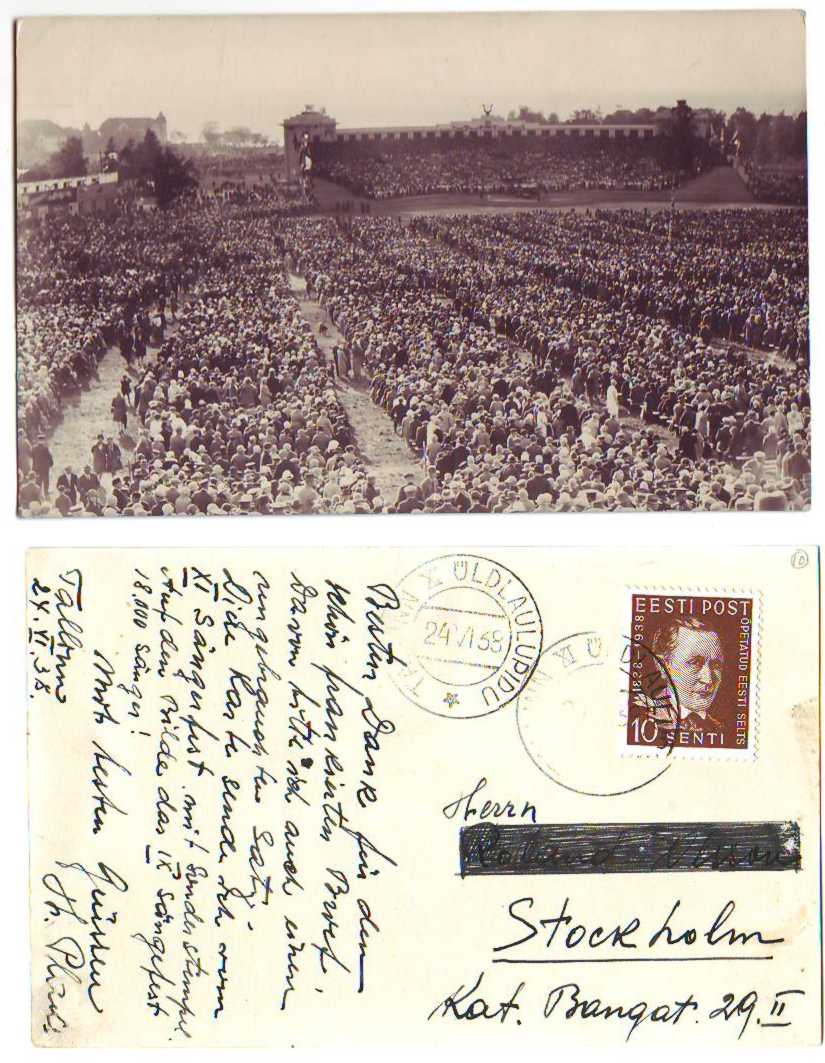 Besten Dank für den
schön frankierten Brief.
Davon bitte ich auch einen
ungebrauchten Satz.
Diese Karte sende ich vom
XI Sängerfest mit Sonderstempel.
Auf dem Bilde das IX Sängefest
18.000 Sänger!
Mit besten Grüssen
Th.
Tallinn
24.VI.38.
ÜLDLAULUPIDU
24 VI 38
EESTI POST
1838-1938
ÕPETATUD EESTI SELTS
10 SENTI
10
Herrn
Stockholm
Kat. Bangat. 29.II